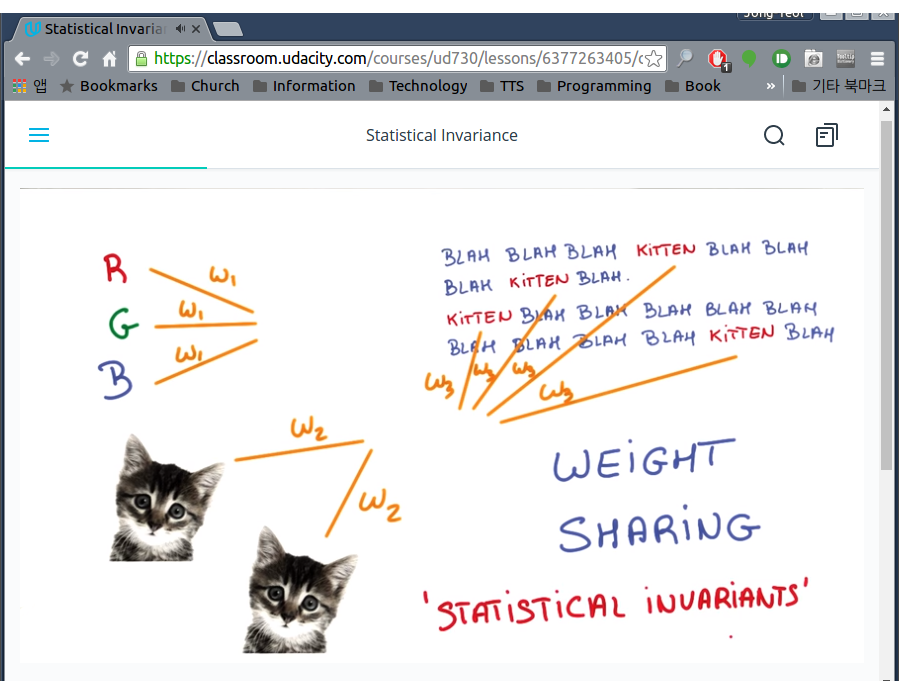 Jong Yeol
Statistical Invaria
https://classroom.udacity.com/courses/ud730/lessons/6377263405/c
1
앱 Bookmarks Church Information Technology TTS Programming Book » 기타 북마크
Statistical Invariance
R W1
G W1
B W1
BLAH BLAH BLAH KiTTEN BLAH BLAH
BLAH KiTTEN BLAH.
KiTTEN BLAH BLAH BLAH BLAH BLAH
BLAH BLAH BLAH BLAH KiTTEN BLAH
W3 W3 W3 W3
W2
W2
WEiGHT
SHARiNG
'STATiSTiCAL iNVARiANTS'